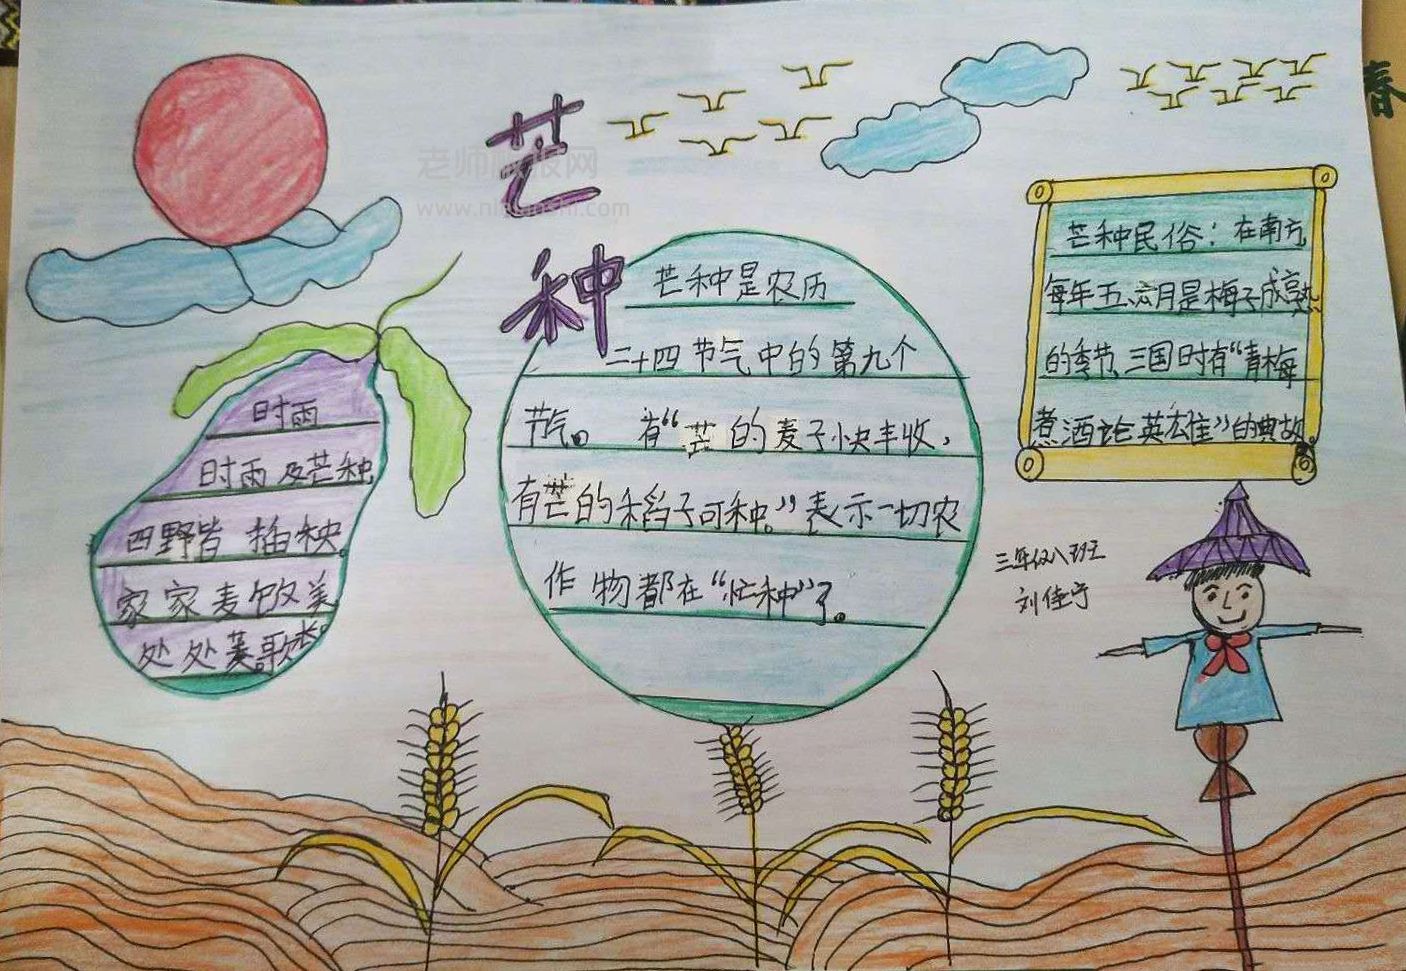 芒种
老师板报网
春
芒种是农历
二十四节气中的第九个
节气。有“芒的麦子快丰收，
有芒的稻子可种。”表示一切农
作物都在“忙种”了。
时雨
时雨及芒种
四野皆插秧
家家麦饭美
处处菱歌长。
芒种民俗：在南方
每年五、六月是梅子成熟
的季节，三国时有“青梅
煮酒论英雄”的典故
三年级八班
刘佳宁